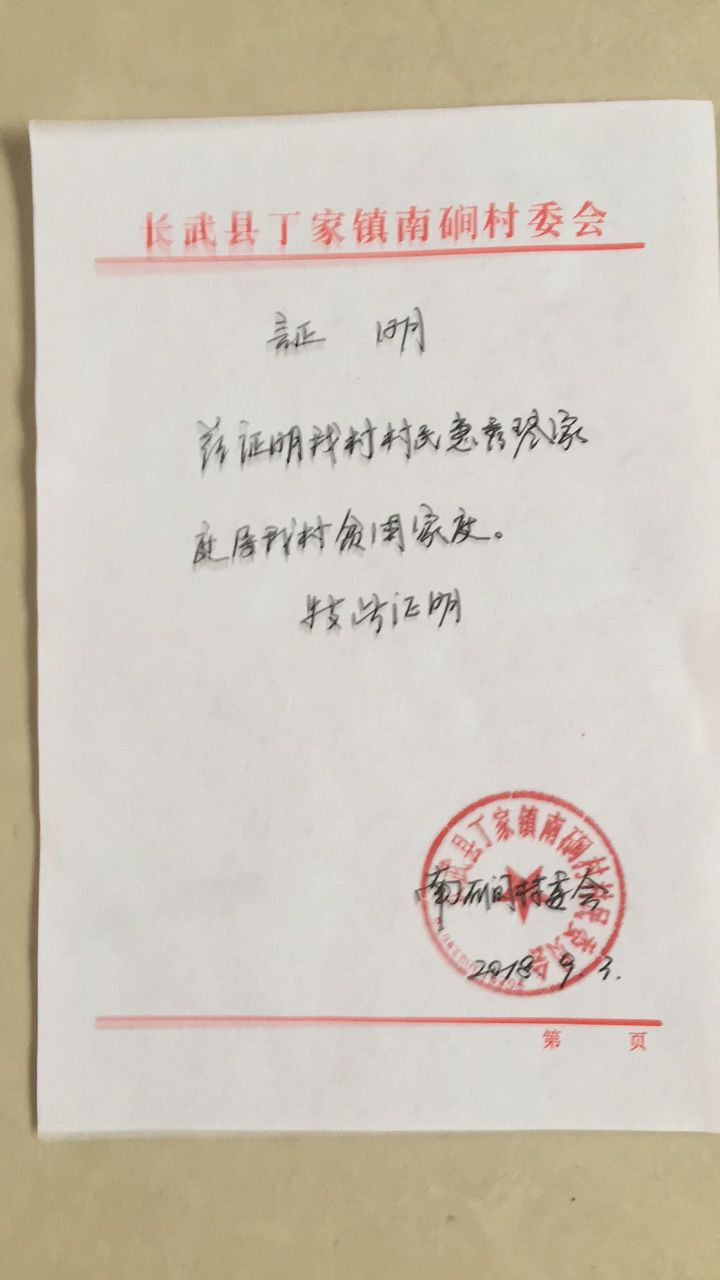 长武县丁家镇南硐村委会
証 明
兹证明我村村民惠秀琴家
庭居我村贫困家庭。
特此证明
武县丁家镇南硐村村民委员会
南硐村委会
2018 9. 3.
第 页